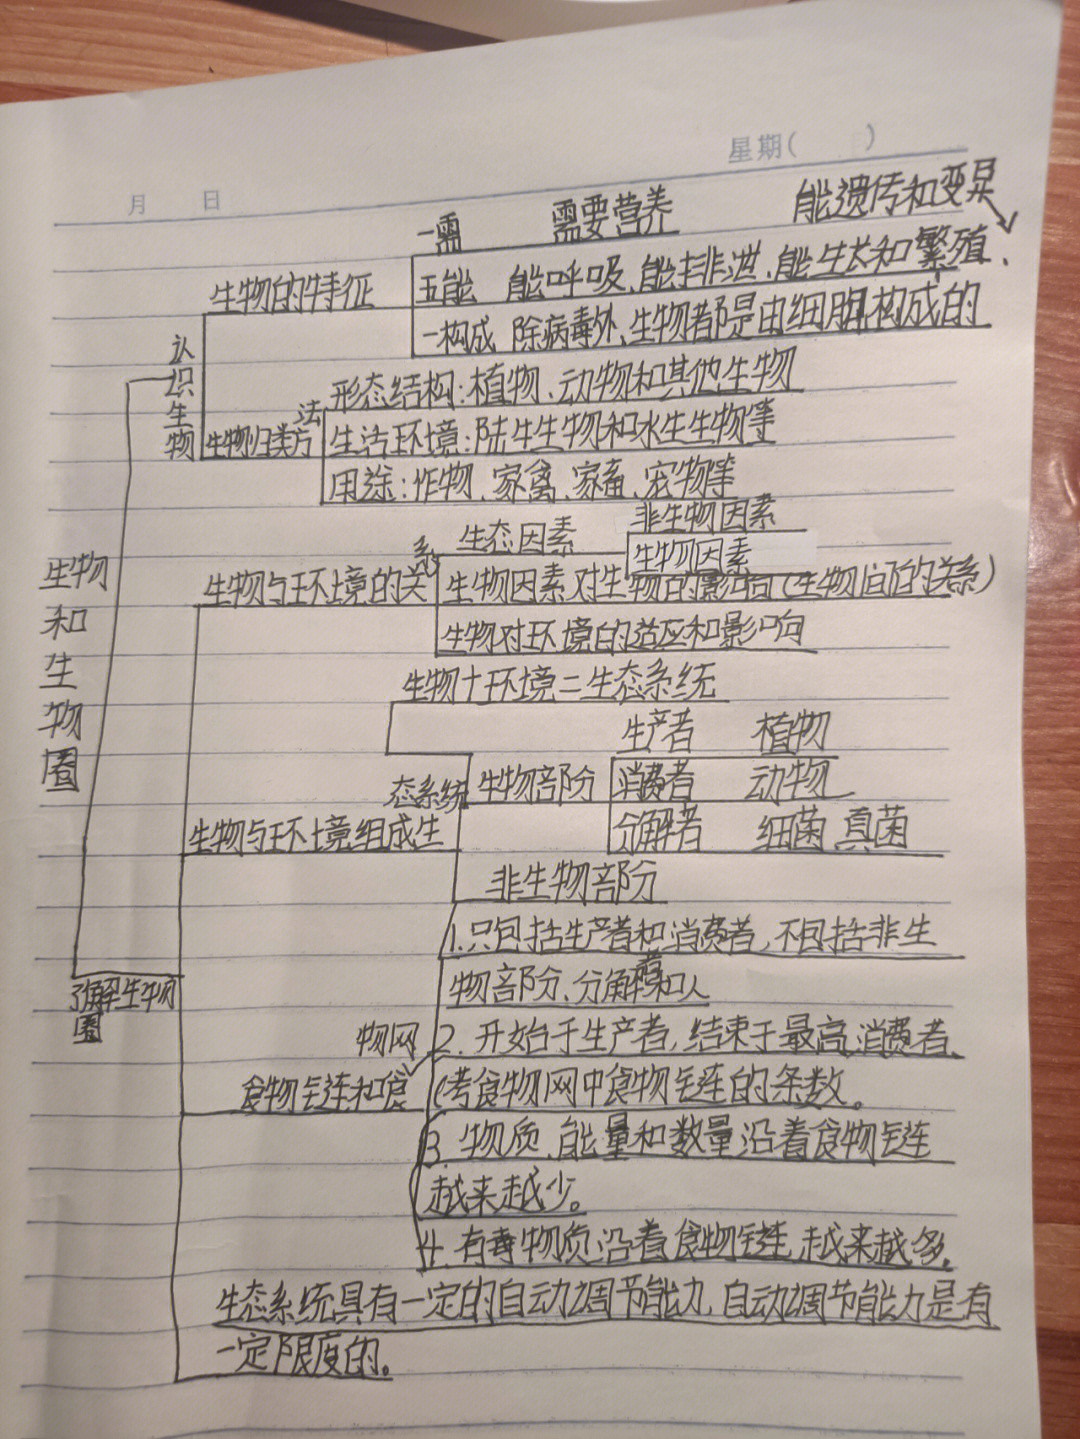 星期(　　)
月　日
一需　需要营养　能遗传和变异
生物的特征　五能　能呼吸、能排泄、能生长和繁殖、
一构成　除病毒外、生物都是由细胞构成的
认识生物
形态结构:植物、动物和其他生物
生物归类方法　生活环境:陆生生物和水生生物等
用途:作物、家禽、家畜、宠物等
非生物因素
生态因素
生物因素
生物与环境的关系　生物因素对生物的影响(生物间的关系)
生物对环境的适应和影响
生物和生物圈
生物+环境=生态系统
生产者　植物
生物部分　消费者　动物
生物与环境组成生态系统
分解者　细菌、真菌
非生物部分
1.只包括生产者和消费者,不包括非生
了解生物圈
物部分、分解者和人
2.开始于生产者,结束于最高消费者、
食物链和食物网　(考食物网中食物链的条数。
3.物质、能量和数量沿着食物链
越来越少。
4.有毒物质沿着食物链越来越多。
生态系统具有一定的自动调节能力,自动调节能力是有
一定限度的。